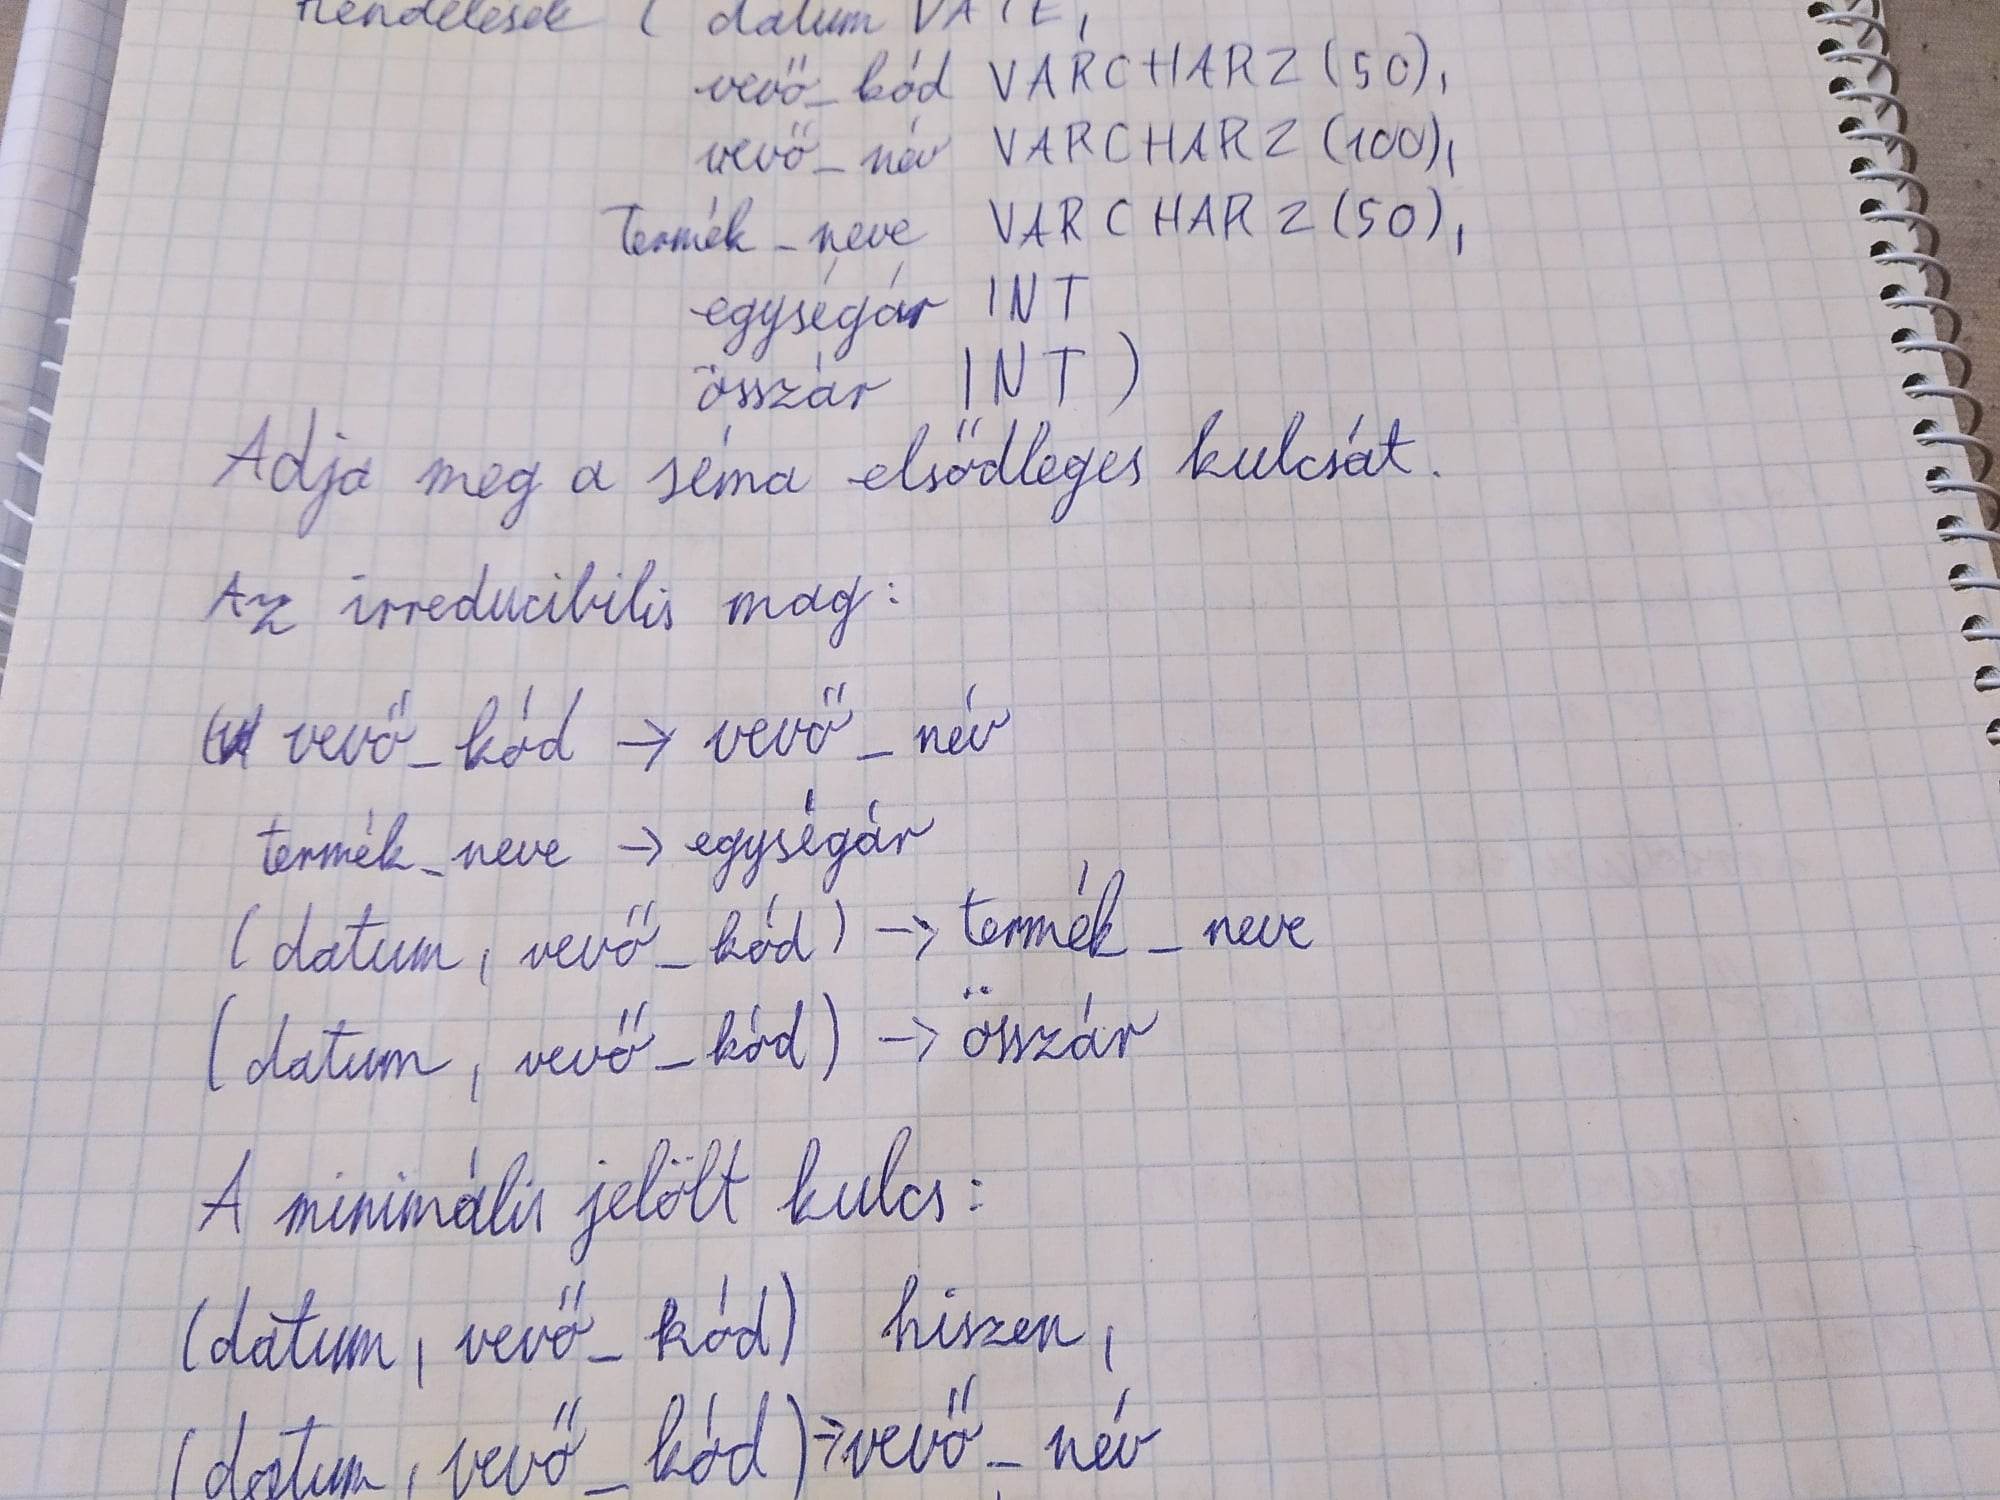 Rendelések ( datum DATE,
vevő_kód VARCHAR2(50),
vevő_név VARCHAR2(100),
Termék_neve VARCHAR2(50),
egységár INT
összár INT)
Adja meg a séma elsődleges kulcsát.
Az irreducibilis mag:
vevő_kód → vevő_név
termék_neve → egységár
(datum, vevő_kód) → termék_neve
(datum, vevő_kód) → összár
A minimális jelölt kulcs:
(datum, vevő_kód) hiszen,
(datum, vevő_kód) → vevő_név